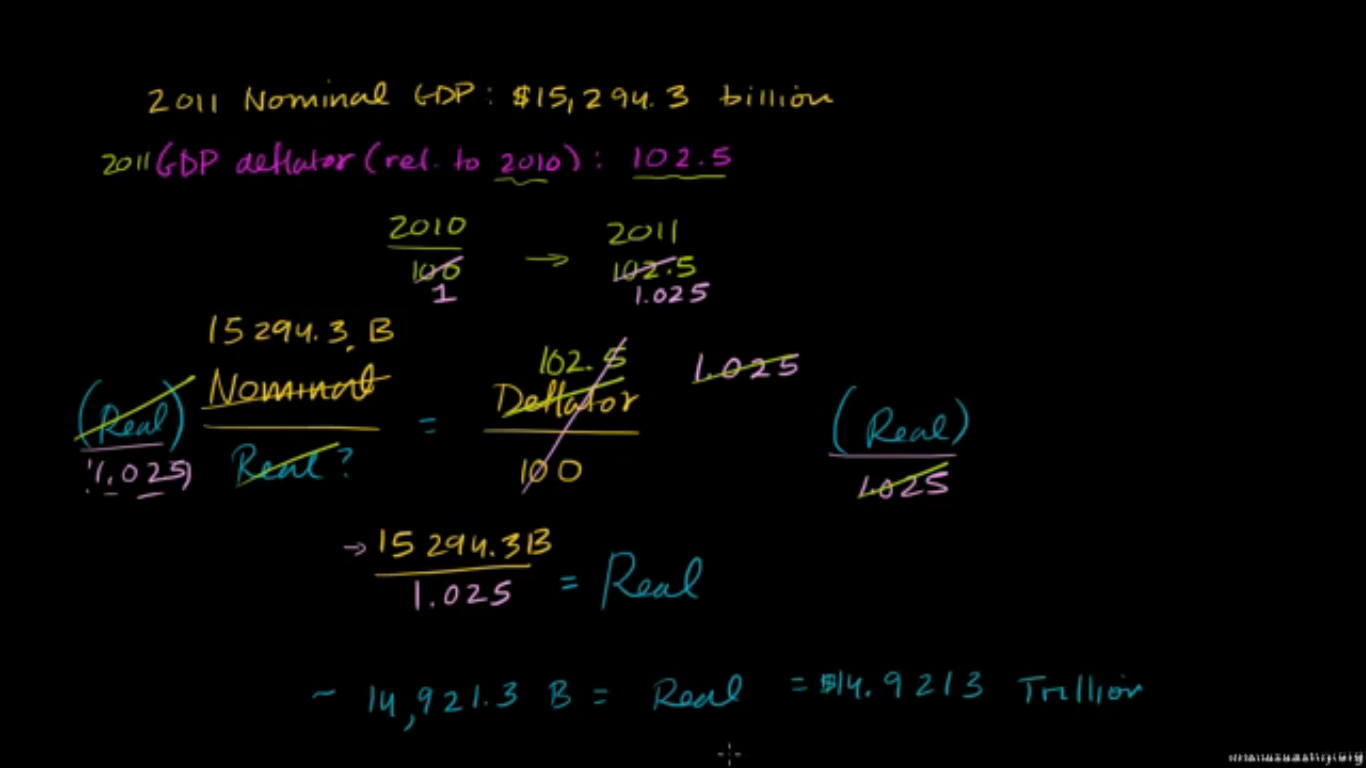 2011 Nominal GDP: $15,294.3 billion
2011 GDP deflator (rel. to 2010): 102.5
2010 → 2011
100 102.5
1 1.025
15 294.3 B
102.5 1.025
(Real) Nominal = Deflator (Real)
1.025 Real? 100 1.025
→ 15 294.3B
1.025 = Real
~ 14,921.3 B = Real = $14.9213 Trillion